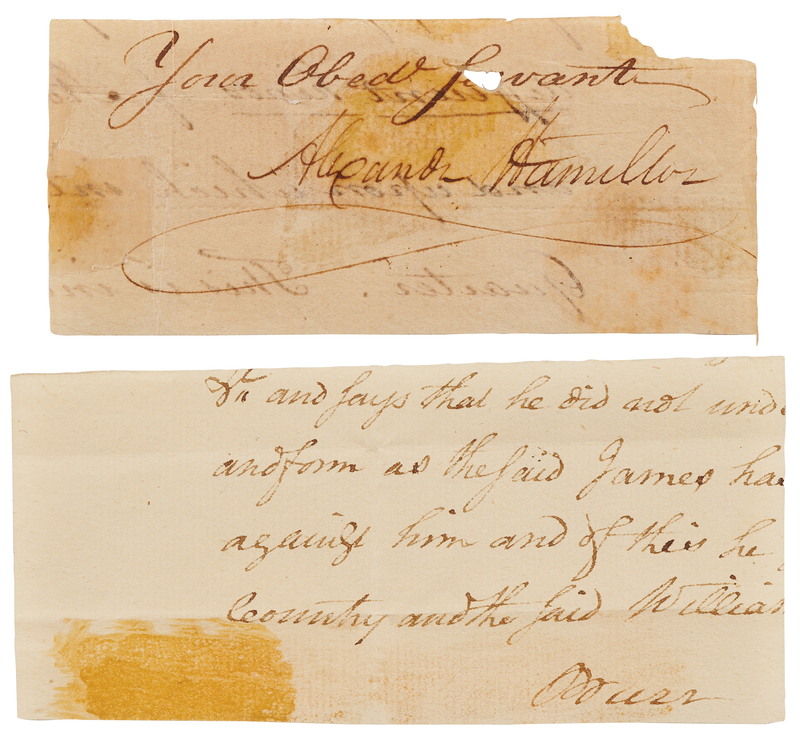 Your Obedt Servant
Alexandr Hamilton
&c and says that he did not und
and form as the said James ha
against him and of this he
Country and the said William
ABurr